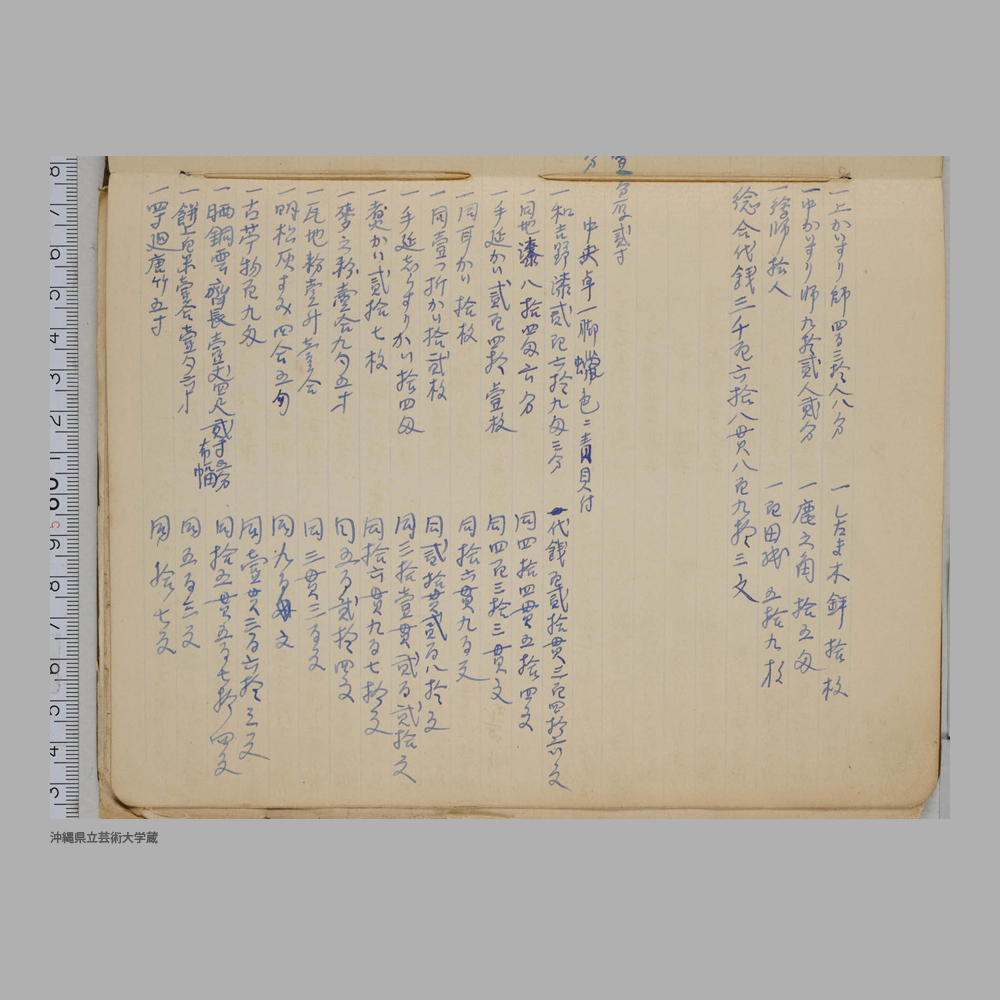 一上かいすり師四百三拾人八分
一中かいすり師九拾貳人貳分
一絵師 拾人
総合代銭二千百六拾八貫八百九拾三文
一したま木鉾 拾枚
一鹿之角 拾五匁
一百田紙 五拾九枚
中央卓一脚蠟色ニ青貝付
一和吉野漆貳百六拾九匁三分
一代銭百貳拾貫三百四拾六文
一同地漆八拾四匁六分
同四拾四貫五拾四文
一手延かい貳百四拾壹枚
同四百三拾三貫文
一同耳かい拾枚
同拾六貫九百文
一同壹つ折かい拾貳枚
同貳拾貫貳百八拾文
一手延志らすりかい拾四匁
同三拾壹貫貳百貳拾文
一煮かい貳拾七枚
同拾六貫九百七拾文
一麥之粉壹合九勺五才
同五百貳拾四文
一瓦地粉壹升壹合
同三貫三百文
一明松灰すみ四合五勺
同九百文
一古苧物百九匁
同壹貫三百六拾三文
一晒銅雲齊長壹丈四尺貳寸五分
布幅
同拾五貫五百七拾四文
一餅上白米壹合壹勺六才
同五百三文
一四寸廻唐竹五寸
同 拾七文
沖縄県立芸術大学蔵